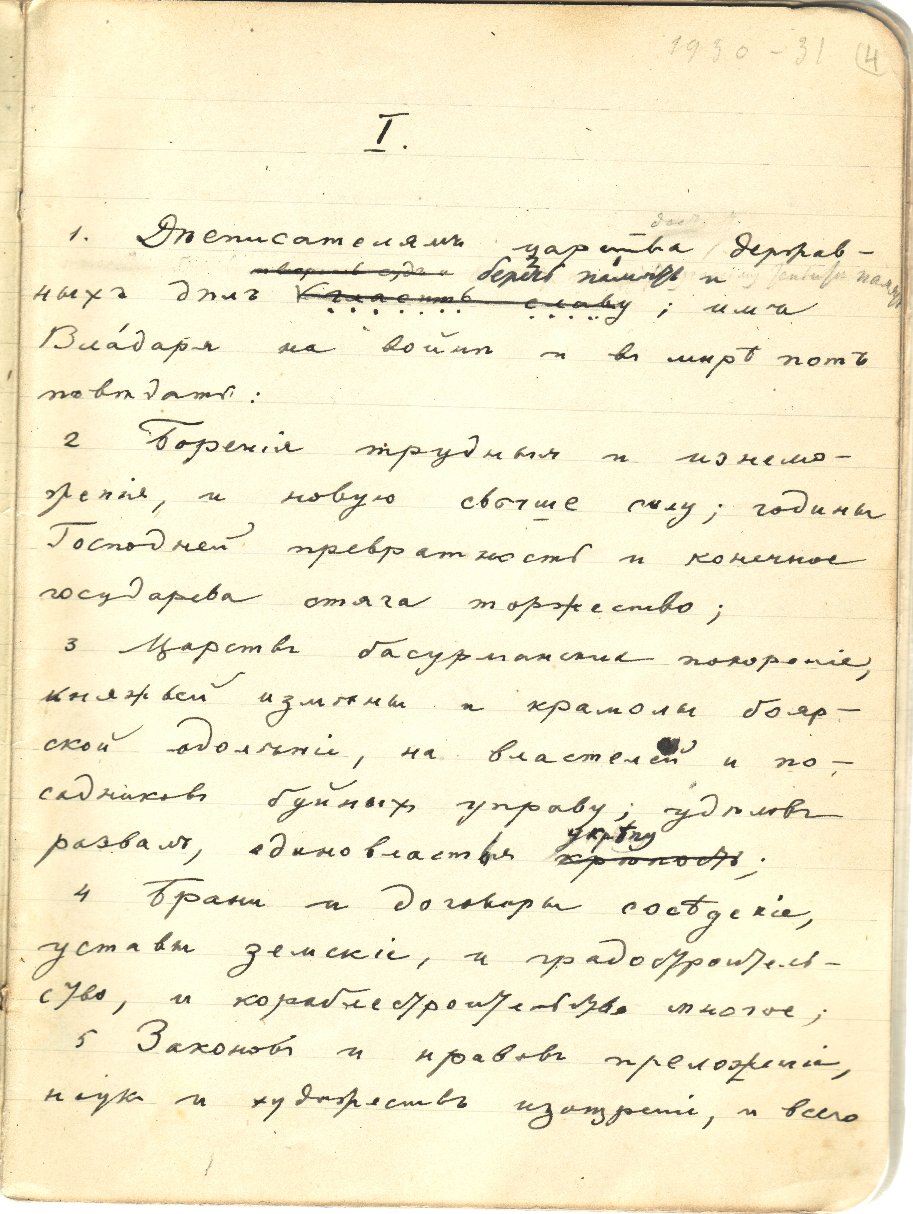 1930-31 4
I.
1. Дѣеписателямъ царства держав-
беречь память и
ныхъ дѣлъ гласить славу; имѣа
Влáдаря на войнѣ и въ мирѣ потъ
повѣдать:
2 Боренія трудныя и изнемо-
женія, и новую свыше силу; годины
Господней превратность и конечное
государева стяга торжество;
3 Царствъ басурманскихъ покореніе,
княжьей измѣны и крамолы бояр-
ской одолѣніе, на властелей и по-
садниковъ буйныхъ управу; удѣловъ
укрѣпу
развалъ, единовластья крѣпость;
4 Брани и договоры сосѣдскіе,
уставы земскіе, и градостроитель-
ство, и кораблестроительство многое;
5 Законовъ и нравовъ преложеніе,
наук и художествъ изощреніе, и всего